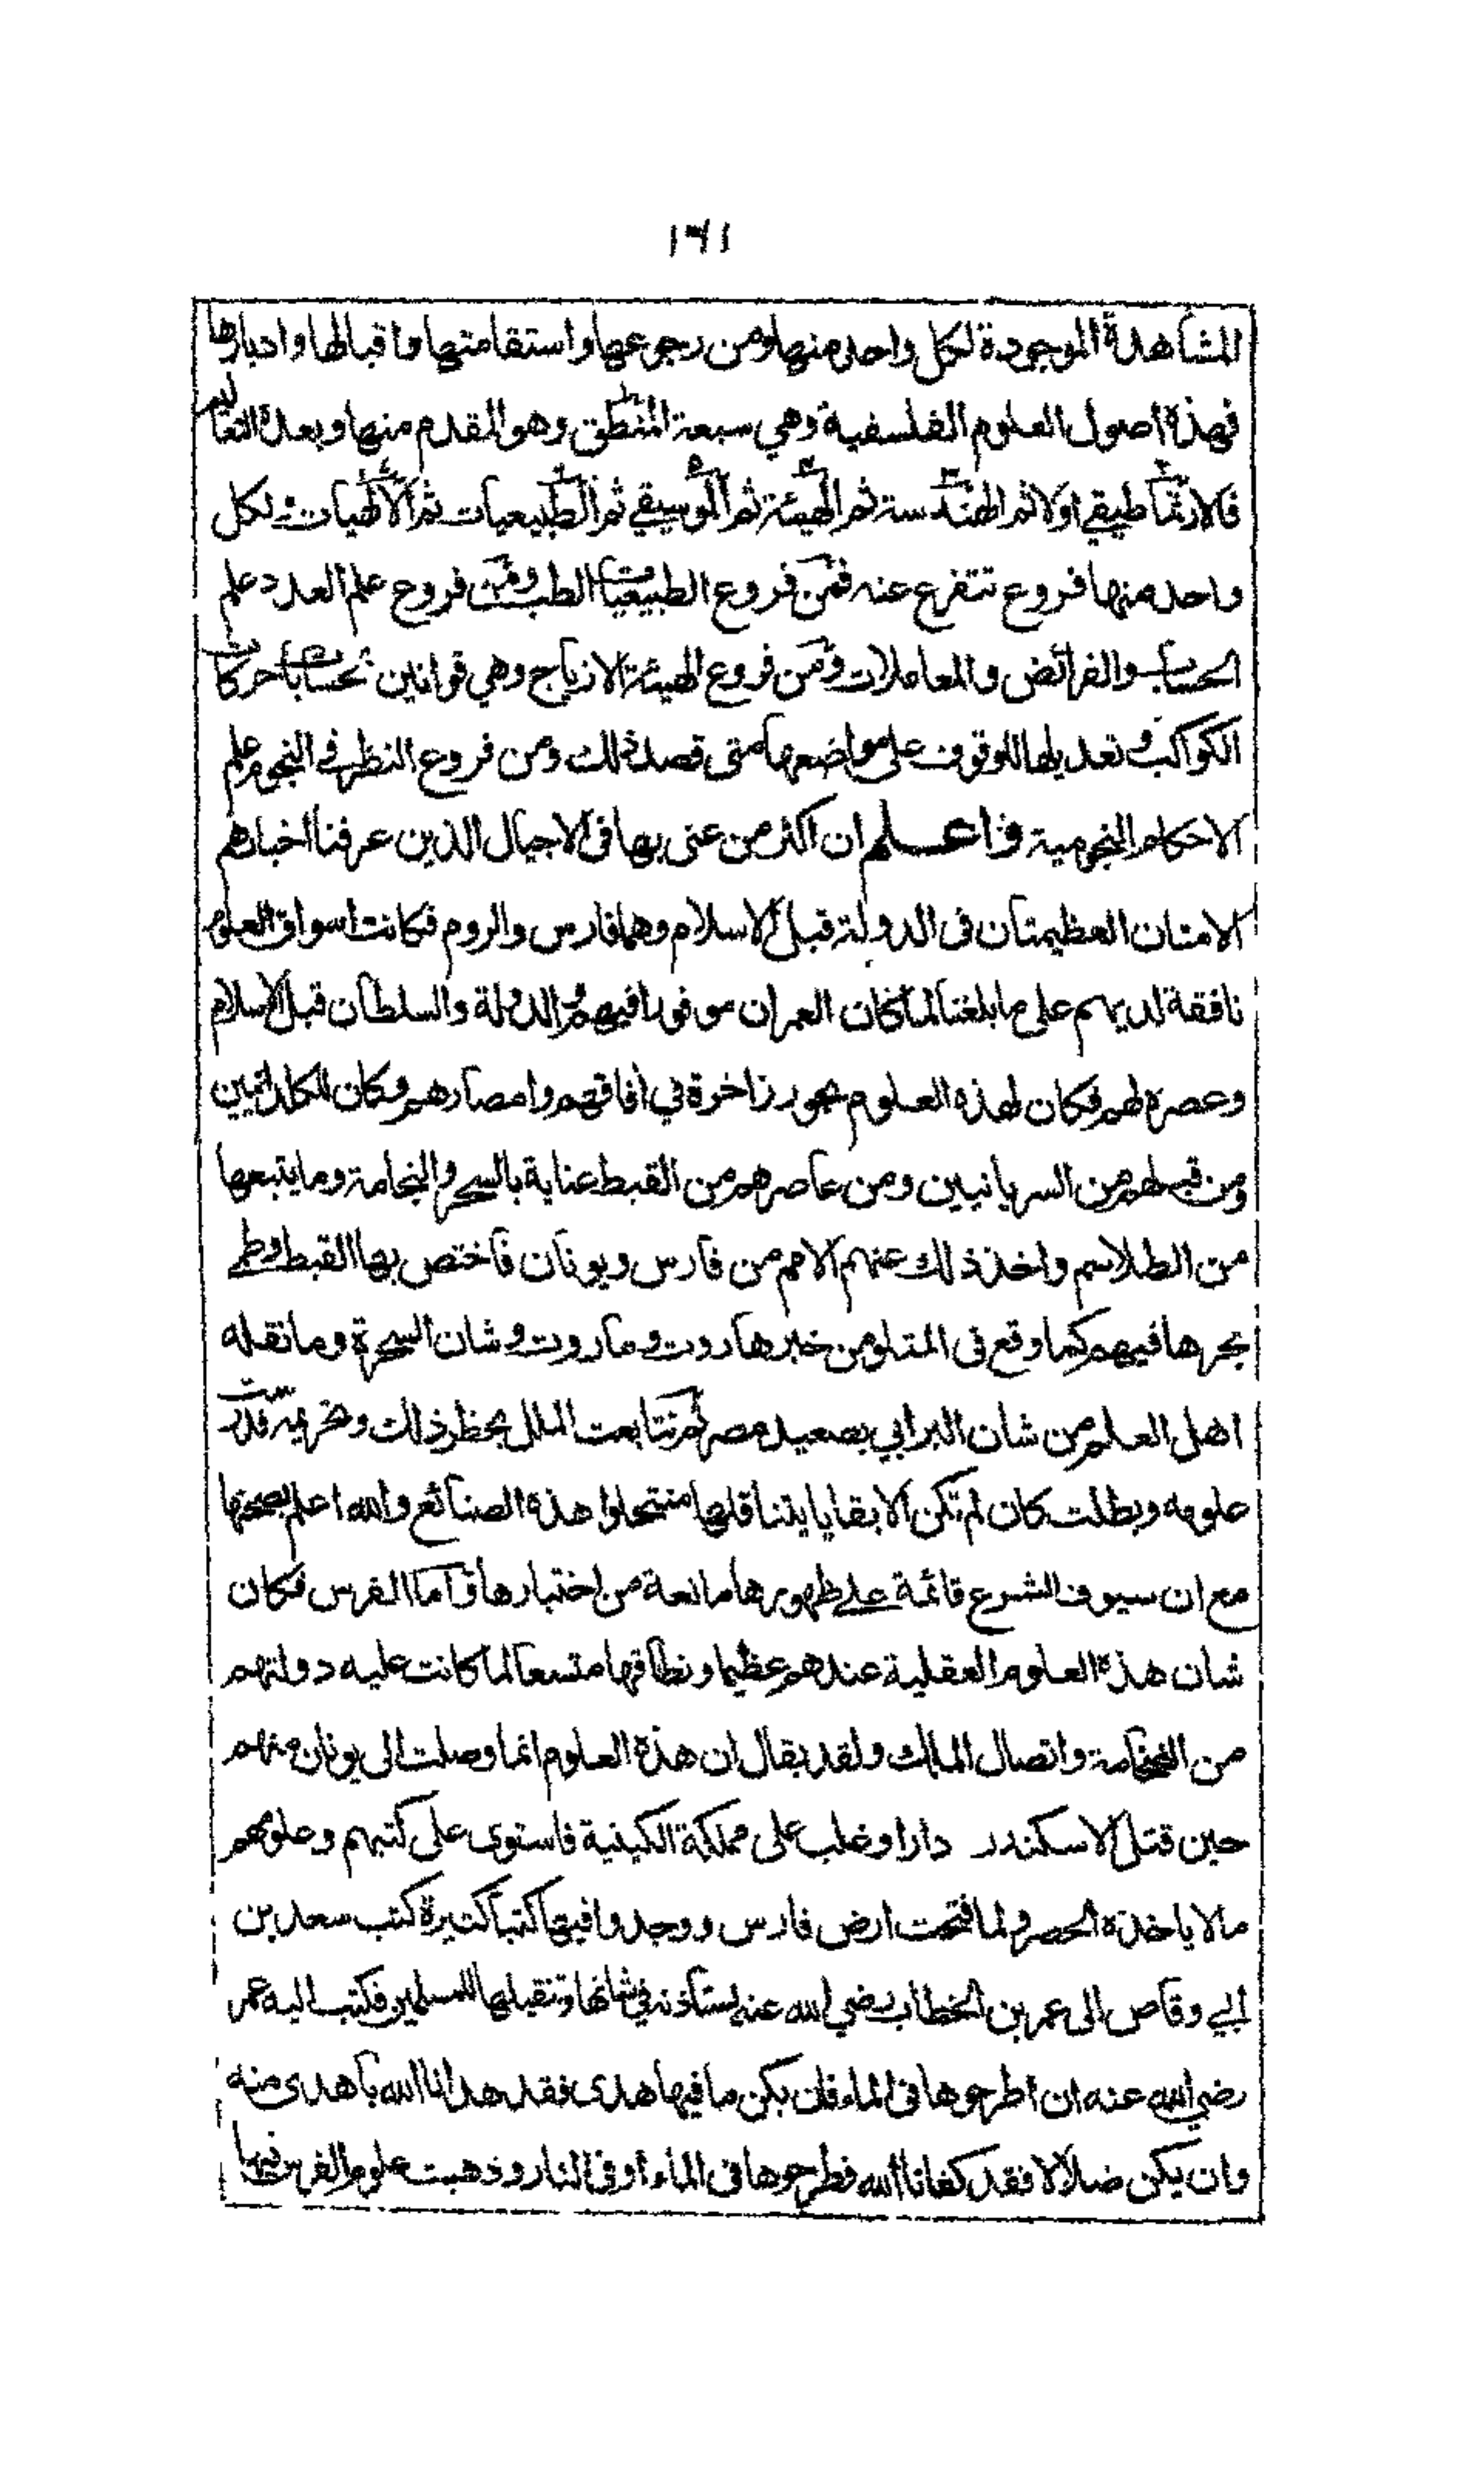 ١٦١
المشاهدة الموجودة لكل واحد منها ومن رجوعها واستقامتها واقبالها وادبارها
فهذه اصول العلوم الفلسفية وهي سبعة المنطق وهو المقدم منها وبعده التعاليم
فالارتماطيقي اولا ثم الهندسة ثم الهيئة ثم الموسيقي ثم الطبيعيات ثم الالهيات ولكل
واحد منها فروع تتفرع عنه فمن فروع الطبيعيات الطب ومن فروع علم العدد علم
الحساب والفرائض والمعاملات ومن فروع الهيئة الازياج وهي قوانين لحسابات حركات
الكواكب وتعديلها للوقوف على مواضعها متى قصد ذلك ومن فروع النظر في النجوم علم
الاحكام النجومية واعلم ان اكثر من عنى بها في الاجيال الذين عرفنا اخبارهم
الامتان العظيمتان في الدولة قبل الاسلام وهما فارس والروم فكانت اسواق العلوم
نافقة لديهم على ما بلغنا لما كان العمران موفورا فيهم والدولة والسلطان قبل الاسلام
وعصره لهم فكان لهذه العلوم بحور زاخرة في افاقهم وامصارهم وكان للكلدانيين
ومن قبلهم من السريانيين ومن عاصرهم من القبط عناية بالسحر والنجامة وما يتبعها
من الطلاسم واخذ ذلك عنهم الامم من فارس ويونان فاختص بها القبط وطمى
بحرها فيهم كما وقع في المتلو من خبر هاروت وماروت وشان السحرة وما نقله
اهل العلم من شان البرابي بصعيد مصر ثم تتابعت الملل بحظر ذلك وتحريمه فدرست
علومه وبطلت كان لم تكن الا بقايا يتناقلها منتحلوا هذه الصنائع والله اعلم بصحتها
مع ان سيوف الشرع قائمة على ظهورها مانعة من اختبارها واما الفرس فكان
شان هذه العلوم العقلية عندهم عظيما ونطاقها متسعا لما كانت عليه دولتهم
من الفخامة واتصال الملك ولقد يقال ان هذه العلوم انما وصلت الى يونان منهم
حين قتل الاسكندر دارا وغلب على مملكة الكينية فاستوى على كتبهم وعلومهم
مالا ياخذه الحصر ولما فتحت ارض فارس ووجدوا فيها كتبا كثيرة كتب سعد بن
ابي وقاص الى عمر بن الخطاب رضي الله عنه ليستاذنه في شانها وتنقيلها للمسلمين فكتب اليه عمر
رضي الله عنه ان اطرحوها في الماء فان يكن ما فيها هدى فقد هدانا الله باهدى منه
وان يكن ضلالا فقد كفانا الله فطرحوها في الماء او في النار وذهبت علوم الفرس فيها